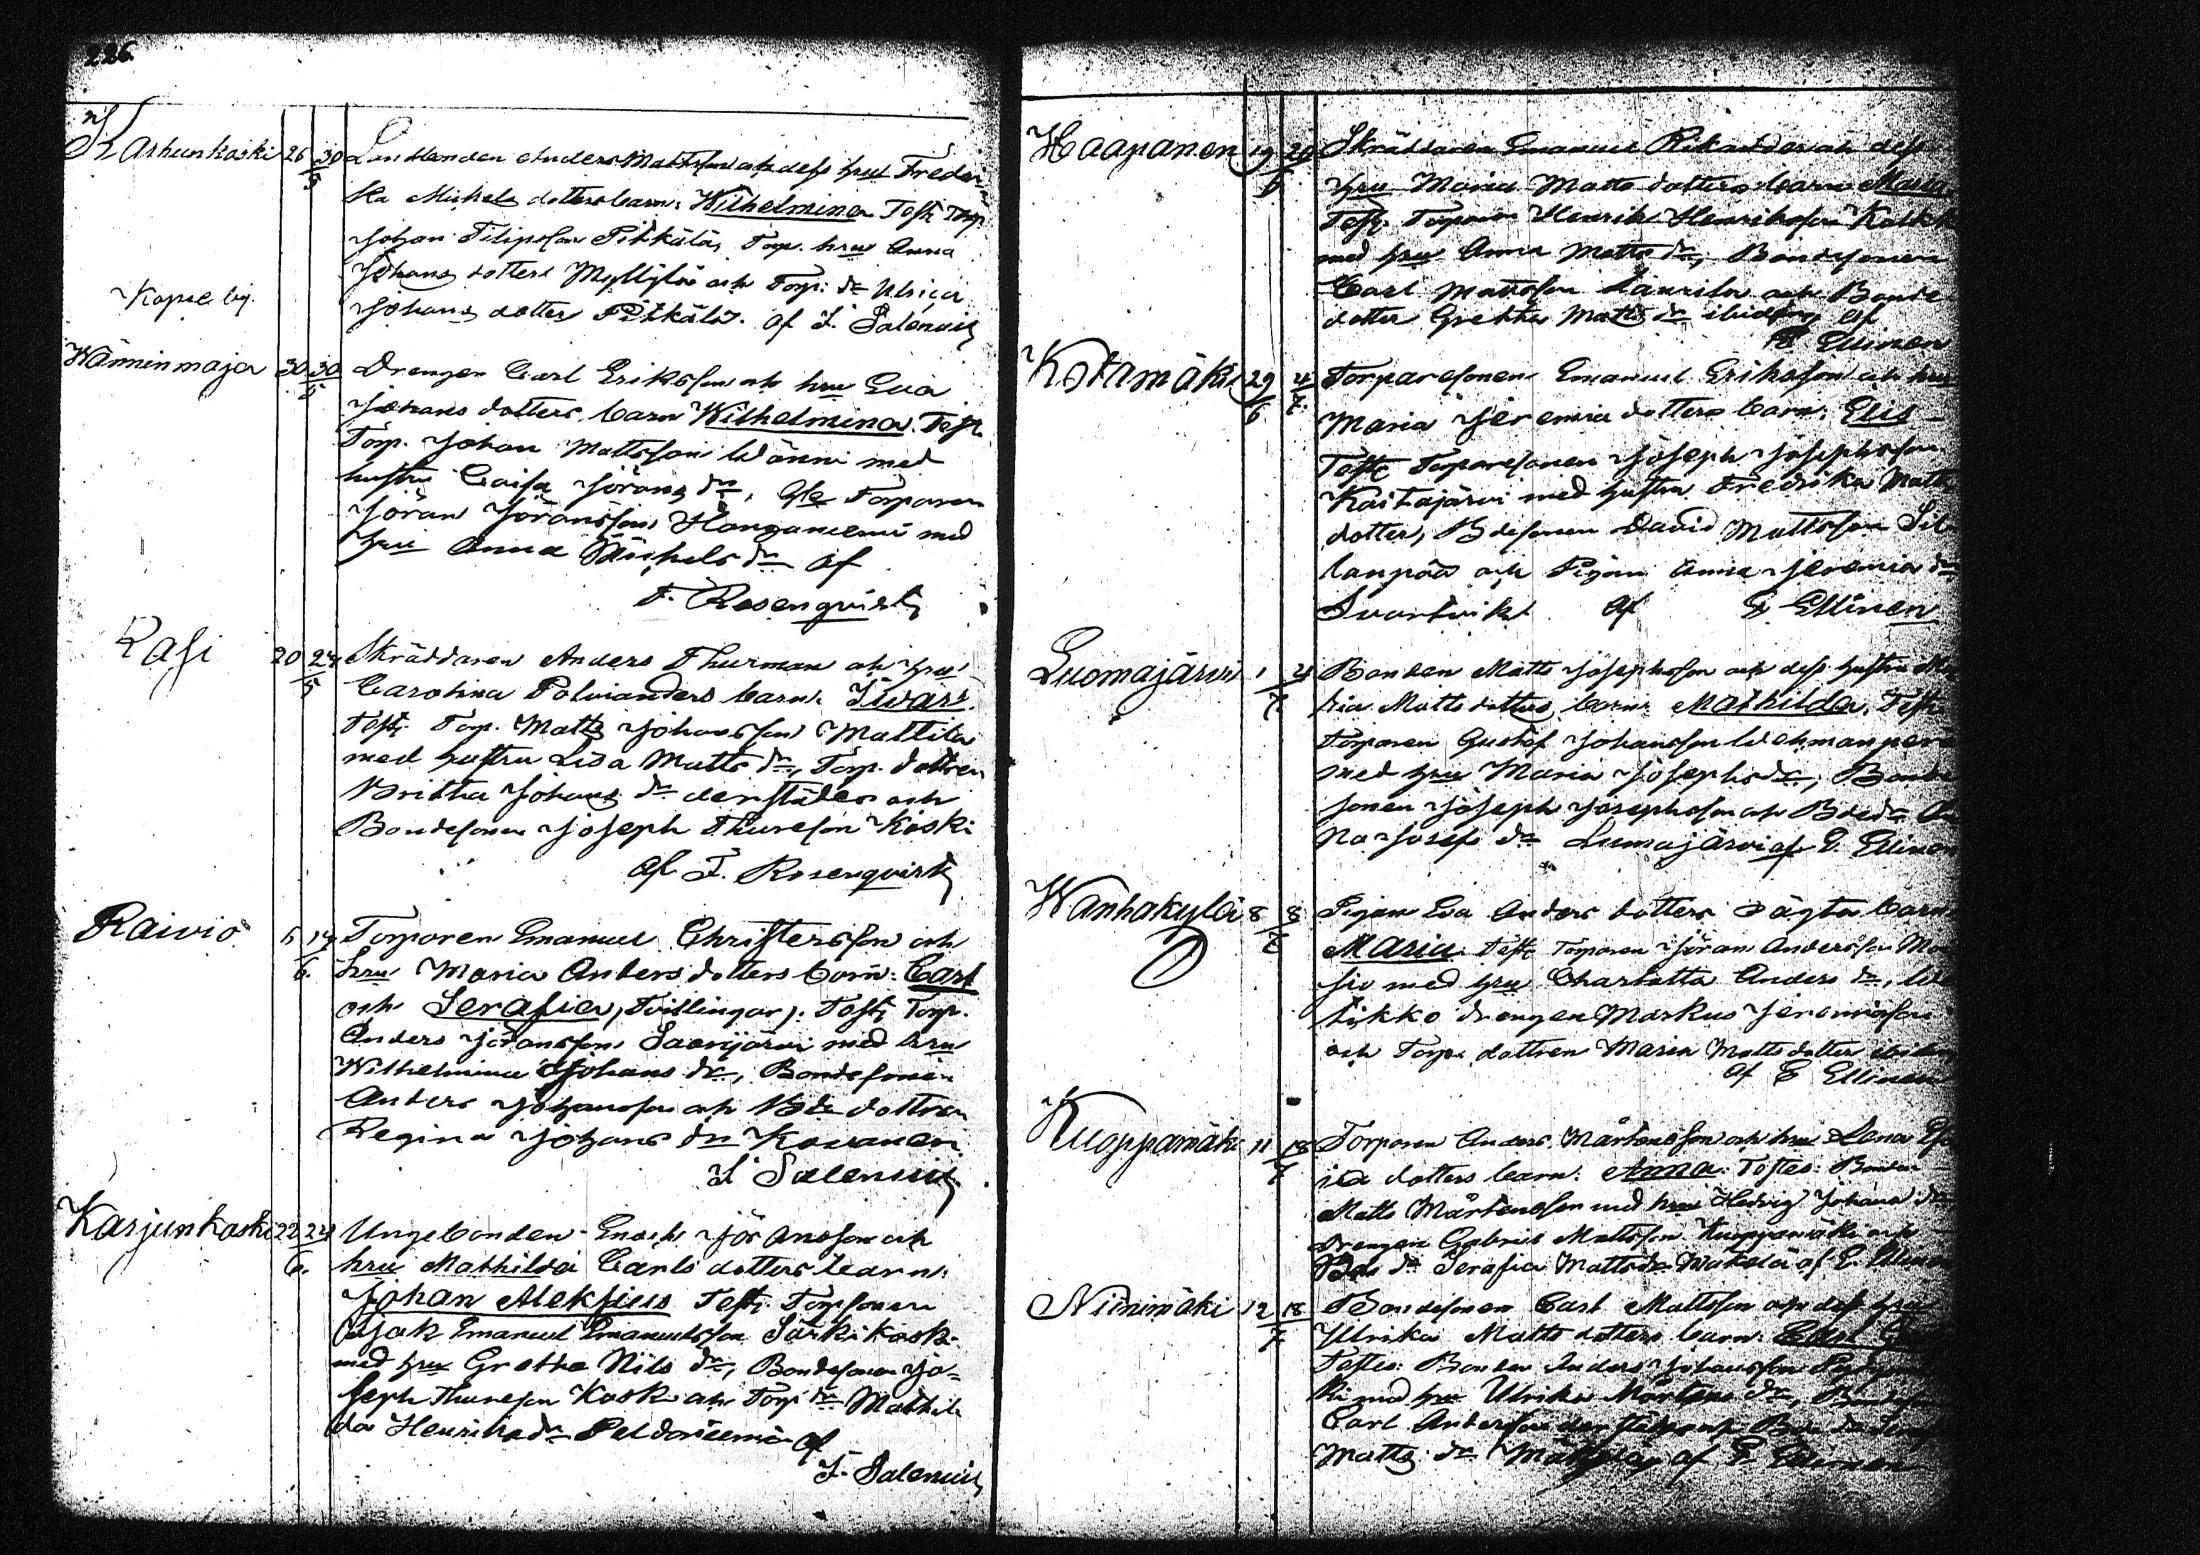 226.
Karhunkoski 26 30/5 Landbonden Anders Mattsson och dess hru Fredri-
ka Michels dotters barn: Wilhelmina Test: Torp.
Johan Filipsson Pitkälä, Torp. hru Anna
Johans dotter Myllylä och Torp: dr Ulrica
Kapee by. Johans dotter Pitkälä. af F. Salenius
Wänninmaja 30 30/5 Drengen Carl Eriksson och hru Eva
Johans dotters barn Wilhelmina. Test.
Torp. Johan Mattsson Wänni med
hustru Caisa Jörans dr, Torparen
Jöran Jöransson Hanganiemi med
hru Anna Michels dr af
F. Rosenqvist
Rasi 20 24/5 Skräddaren Anders Thurman och hru
Carolina Polvianders barn: Iwar.
Test: Torp. Matts Johansson Mattila
med hustru Lisa Matts dr, Torp. dottren
Britha Johans dr derstädes och
Bondesonen Joseph Thuresson Koski
af F. Rosenqvist
Raivio 5 14/6. Torparen Emanuel Christersson och
hru Maria Anders dotters barn: Carl
och Serafia, (tvillingar). Test: Torp.
Anders Jöransson Saarijärvi med hru
Wilhelmina Johans dr, Bondesonen
Anders Johansson och Bde dottren
Regina Johans dr Kovanen
F Salenius
Karjunkoski 22 24/6. Ungebonden Enoch Jöransson och
hru Mathilda Carls dotters barn:
Johan Aleksius Test: Torpsonen
Isak Emanuel Emanuelsson Särkikoski
med hru Gretha Nils dr, Bondesonen Jo-
seph Thuresson Koski och Torp dr Mathil-
da Henriks dr Peldoniemi af
F. Salenius
Haapanen 19 20/6 Skräddaren Emanuel och dess
hru Maria Matts dotters barn Maria
Test: Torparen Henrik Henriksson
med hru Anna Matts dr, Bondesonen
Carl Mattsson Laurila och Bonde-
dotter Gretha Matts dr ibidem af
E. Ellinen
Kotamäki 29/6 4/7 Torparesonen Emanuel Eriksson och hru
Maria Jeremia dotters barn: Elis
Test: Torparesonen Joseph Josephsson
Kaitajärvi med hustru Fredrika Matts
dotter, Bdesonen David Mattsson Sil-
lanpää och Pigan Anna Jeremia dr
Svartvik af E Ellinen
Luomajärvi 1 4/7 Bonden Matts Josephsson och dess hustru Ma-
ria Matts dotters barn: Mathilda, Test
Torparen Gustaf Johansson Wehmanperä
med hru Maria Josephs dr, Bonde
sonen Joseph Josephsson och Bde dr An
na Josefs dr Lumajärvi af E. Ellinen
Wanhakylä 8 8/7 Pigan Eva Anders dotters oägta barn
Maria. Test: Torparen Jöran Andersson
med hru Charlotta Anders dr,
drengen Markus Jeremiasson
och Torp. dottren Maria Matts dotter ibidem
af E Ellinen
Kuoppamäki 11 18/7 Torparen Anders Mårtensson och hru Lena
dotters barn: Anna. Testes: Bonden
Matts Mårtensson med hru Hedvig Johans dr
drengen Gabriel Mattsson Kuoppamäki och
Bde dr Serafia Matts dr Mäkelä af E. Ellinen
Niinimäki 12 18/7 Bondesonen Carl Mattsson och dess hru
Ulrika Matts dotters barn: Carl
Testes: Bonden Anders Johansson
med hru Ulrika Mårtens dr,
Carl Andersson derstädes och Bde dr
Matts dr af E. Ellinen